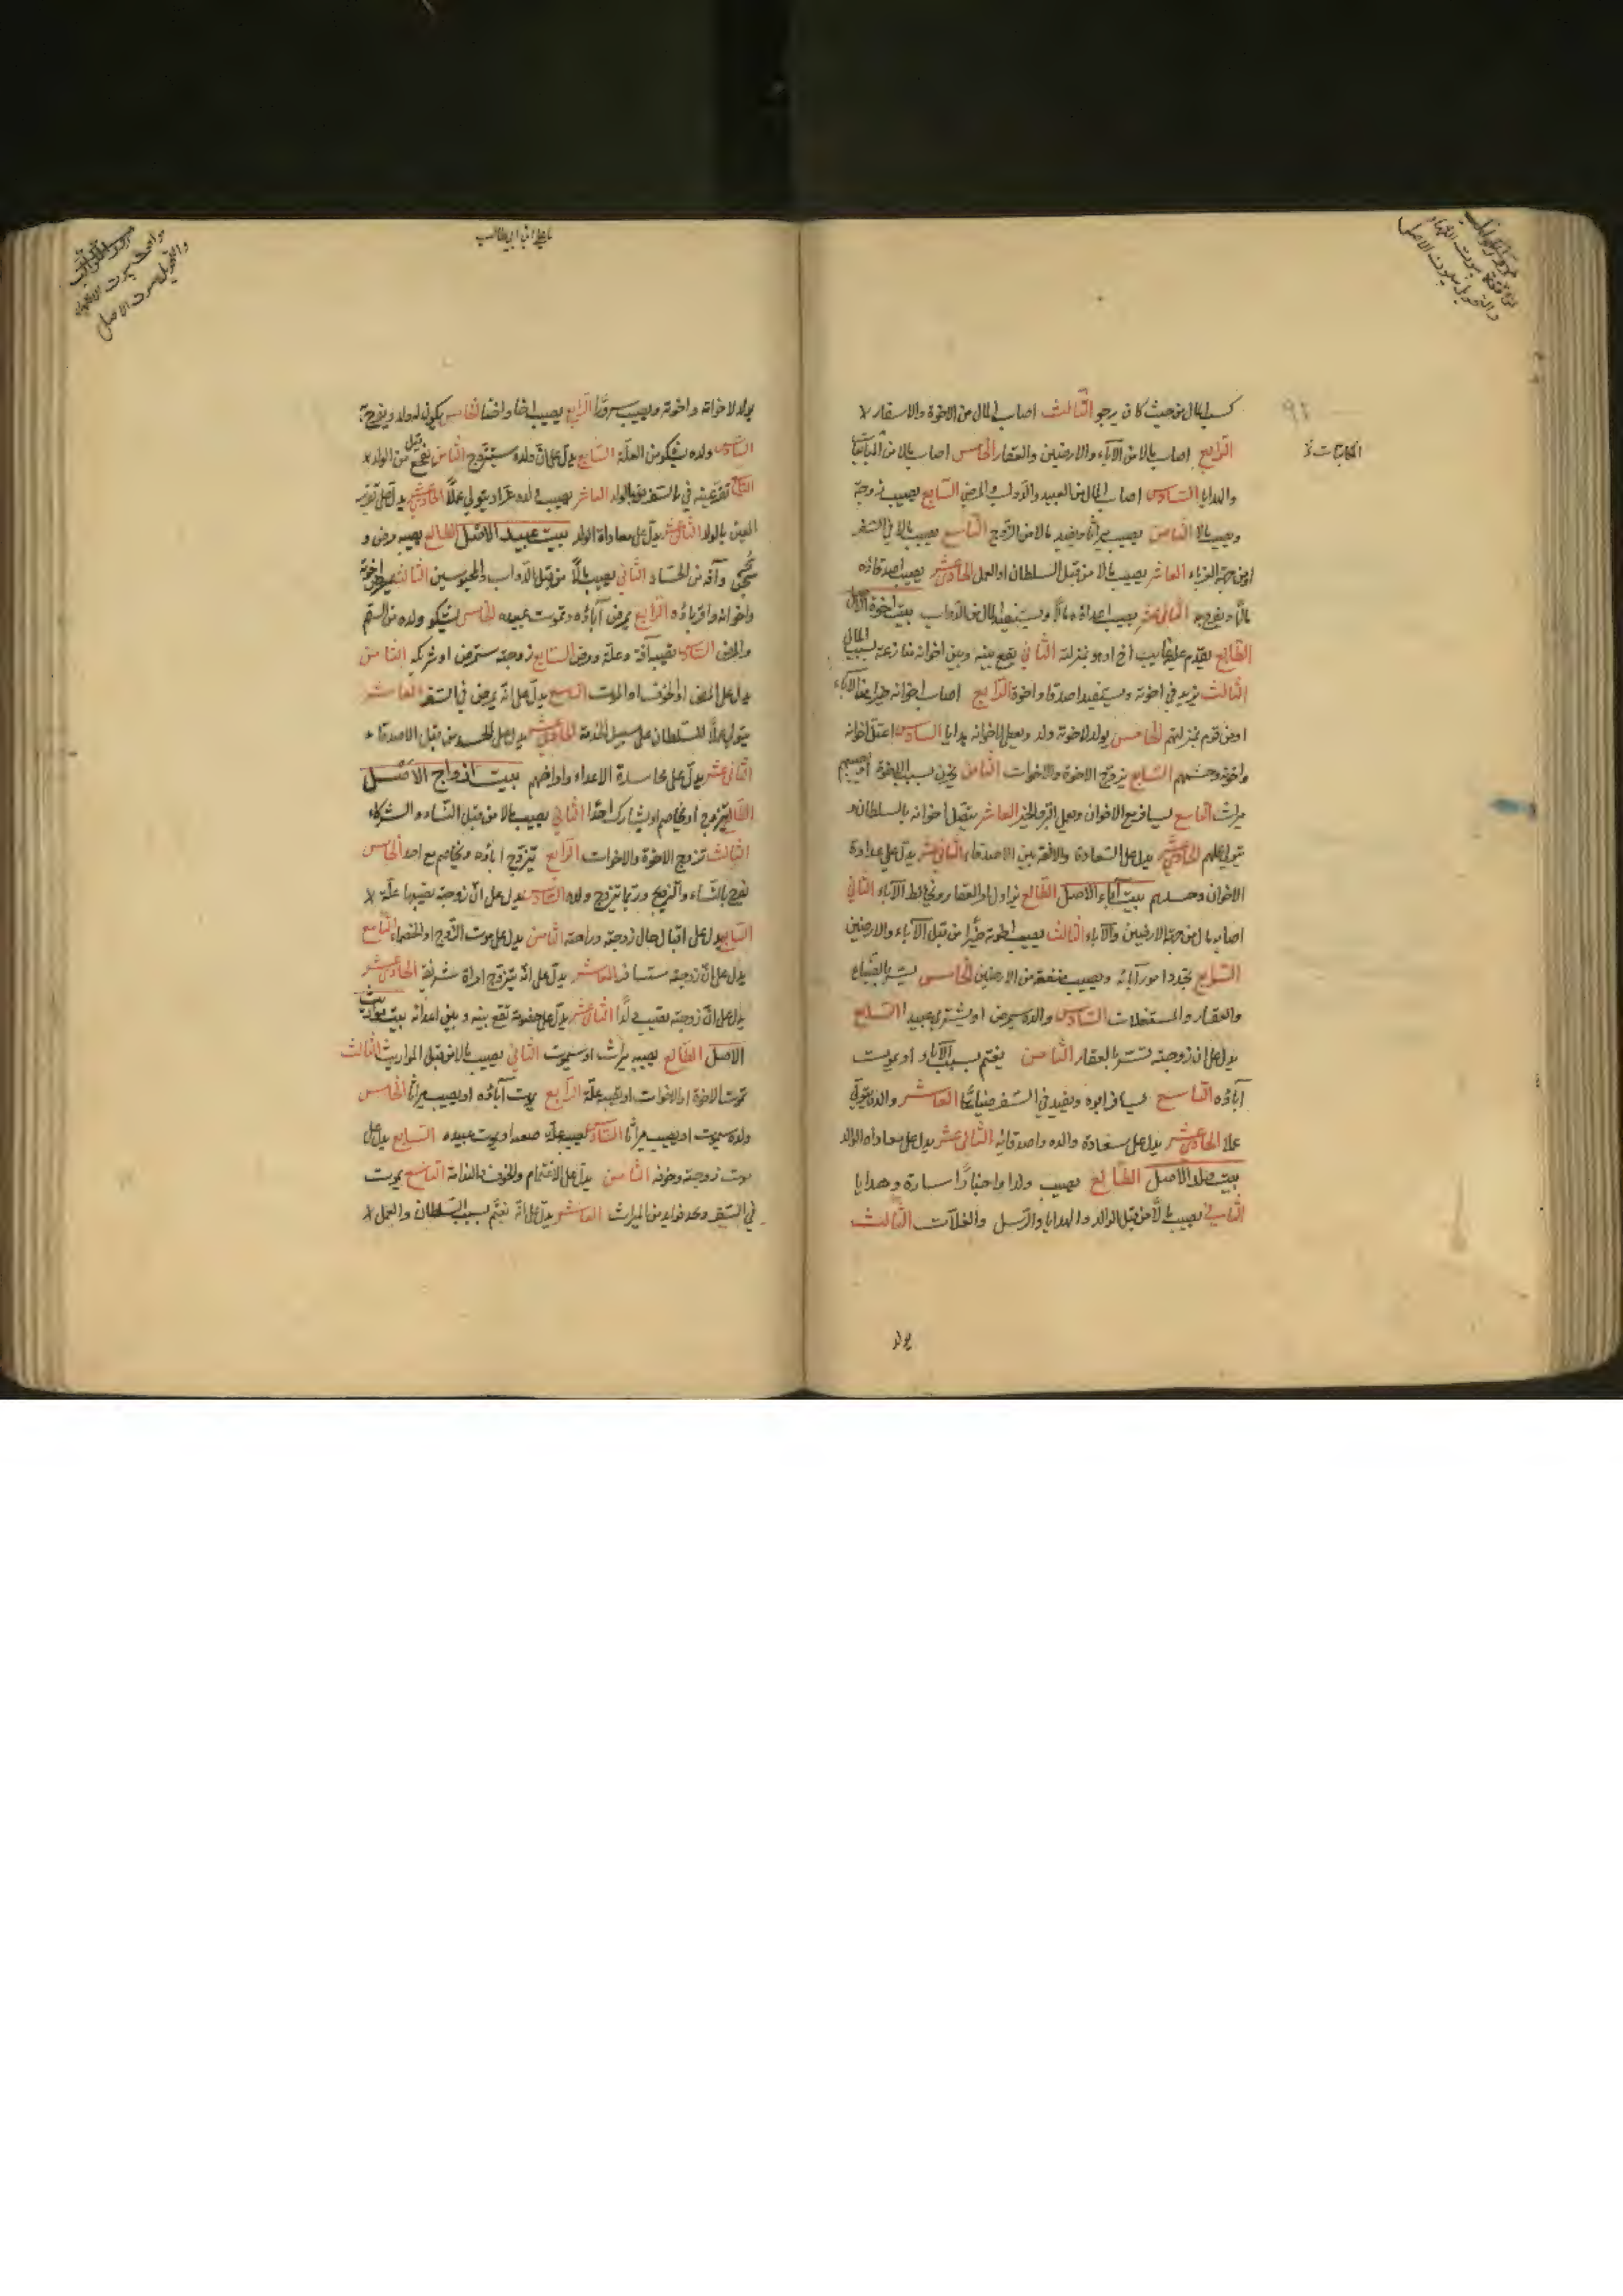 كسب المال من حيث كان يرجو الثالث اصاب المال من الاخوة والاسفار
الرابع اصاب مالا من الآباء والارضين والعقار الخامس اصاب مالا من
والهدايا السادس اصاب المال من العبيد والدواب والمرضى السابع يصيب زوجة
ويصيب مالا الثامن يصيب ميراثا ويفيد مالا من الزوج التاسع يصيب مالا في السفر
او من جهة الغرباء العاشر يصيب مالا من قبل السلطان او العمل الحادي عشر يصيب اصدقاؤه
مالًا ويفرح به الثاني عشر يصيب اعداؤه مالًا ويستفيد المال من الدواب بيت اخوة الاصل
الطالع يقدم عليه غايب اخ او هو بمنزلته الثاني يقع بينه وبين اخوانه منازعة بسبب المال
الثالث يزيد في اخوته ويستفيد اصدقا واخوة الرابع اصاب اخوانه خيرا من الآباء
او من قوم بمنزلتهم الخامس يولد لاخوته ولد ويصل الى اخوانه هدايا السادس اعتل اخوانه
واخوته وحشمهم السابع يزوج الاخوة والاخوات الثامن يحزن بسبب الاخوة
ميراث التاسع يسافر مع الاخوان ويعمل البر والخير العاشر يتصل اخوانه بالسلطان و
يتولى عملهم الحادي عشر يدل على السعادة والالفة بين الاصدقاء الثاني عشر يدل على عداوة
الاخوان وحسدهم بيت آباء الاصل الطالع يزاول امر العقار ويخالط الآباء الثاني
اصاب مالا من جهة الارضين والآباء الثالث يصيب اخوته خيرًا من قبل الآباء والارضين
الرابع تجدد امور آبائه ويصيب منفعة من الارضين الخامس يشترى الضياع
والعقار والمستغلات السادس والده سيمرض او يشترى عبيدا السابع
يدل على ان زوجته تستر بالعقار الثامن يغتم بسبب الآباء او يموت
آباؤه التاسع يسافر ابوه ويفيد في السفر ضياعًا العاشر والده يتولى
عملا الحادي عشر يدل على سعادة والده واصدقائه الثاني عشر يدل على معاداة الوالد
بيت ولد الاصل الطالع يصيب ولدا واخبارًا سارة وهدايا
الثاني يصيب مالًا من قبل الوالد والهدايا والرسل والغلات الثالث
يولد
يولد لاخوانه واخوته ويصيب سرورًا الرابع يصيب اخا واختا الخامس يكون له ولد ويفرح به
السادس ولده يشكو من العلة السابع يدل على ان ولده سيتزوج الثامن يفجع من قبل الولد
التاسع تقر عينه في السفر بالولد العاشر يصيب ولده عزا ويتولى عملا الحادي عشر يدل على تقرير
العين بالولد الثاني عشر يدل على معاداة الولد بيت عبيد الاصل الطالع يصيبه مرض و
وآفة من الحساد الثاني يصيب مالًا من قبل الدواب والمحبوسين الثالث يمرض اخوته
واخواته واقرباؤه الرابع يمرض آباؤه وتموت عبيده الخامس يشكو ولده من السقم
والمرض السادس يصيبه آفة وعلة ومرض السابع زوجته ستمرض او شريكه الثامن
يدل على المرض او الخوف او الموت التاسع يدل على انه يمرض في السفر العاشر
يتولى عملًا للسلطان على سبيل الخدمة الحادي عشر يدل على الحسد من قبل الاصدقاء
الثاني عشر يدل على محاسدة الاعداء وامراضهم بيت ازواج الاصل
الطالع يتزوج او يخاصم او يشارك احدًا الثاني يصيب مالا من قبل النساء والشركاء
الثالث تزوج الاخوة والاخوات الرابع يتزوج آباؤه ويخاصم مع احد الخامس
يفرح بالنساء والتزويج وربما يتزوج ولده السادس يدل على ان زوجته يصيبها علة
السابع يدل على اقبال حال زوجته وراحته الثامن يدل على موت الزوج او الخصماء التاسع
يدل على ان زوجته ستسافر العاشر يدل على انه يتزوج امراة شريفة الحادي عشر
يدل على ان زوجته تصيب ولدًا الثاني عشر يدل على خصومة تقع بينه وبين اعدائه بيت موت
الاصل الطالع يصيبه ميراث او سيموت الثاني يصيب مالا من قبل المواريث الثالث
تموت الاخوة او الاخوات او يصيبه علة الرابع يموت آباؤه او يصيب ميراثا الخامس
ولده سيموت او يصيب ميراثا السادس يصيبه علة صعبة او يموت عبيده السابع يدل على
موت زوجته وخوفه الثامن يدل على الاغتمام والخوف والندامة التاسع يموت
في السفر ويجد فوايد من الميراث العاشر يدل على انه يغتم بسبب السلطان والعمل